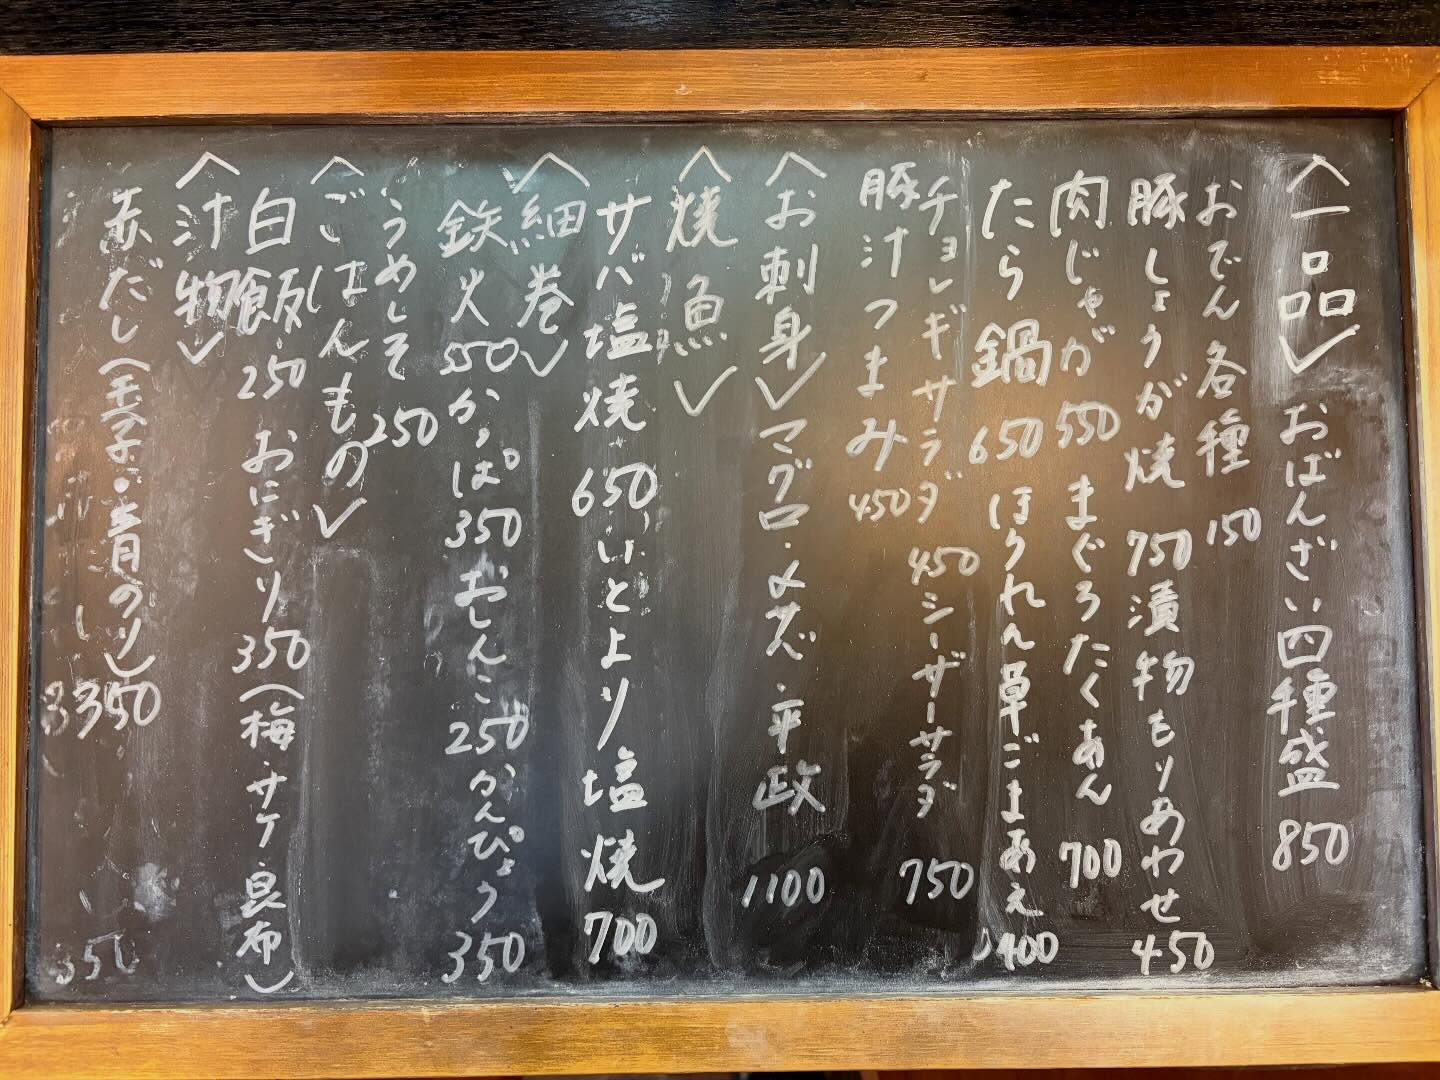 〈一品〉 おばんざい四種盛 850
おでん各種 150
豚しょうが焼 750 漬物もりあわせ 450
肉じゃが 550 まぐろたくあん 700
たら鍋 650 ほうれん草ごまあえ 400
チョレギサラダ 450 シーザーサラダ 750
豚汁つまみ 450
〈お刺身〉 マグロ・〆サバ・平政 1100
〈焼魚〉
サバ塩焼 650 いとより塩焼 700
〈細巻〉
鉄火 550 かっぱ 350 おしんこ 250 かんぴょう 350
うめしそ 250
〈ごはんもの〉
白飯 250 おにぎり 350 (梅・サケ・昆布)
〈汁物〉
赤だし (玉子・青のり) 350